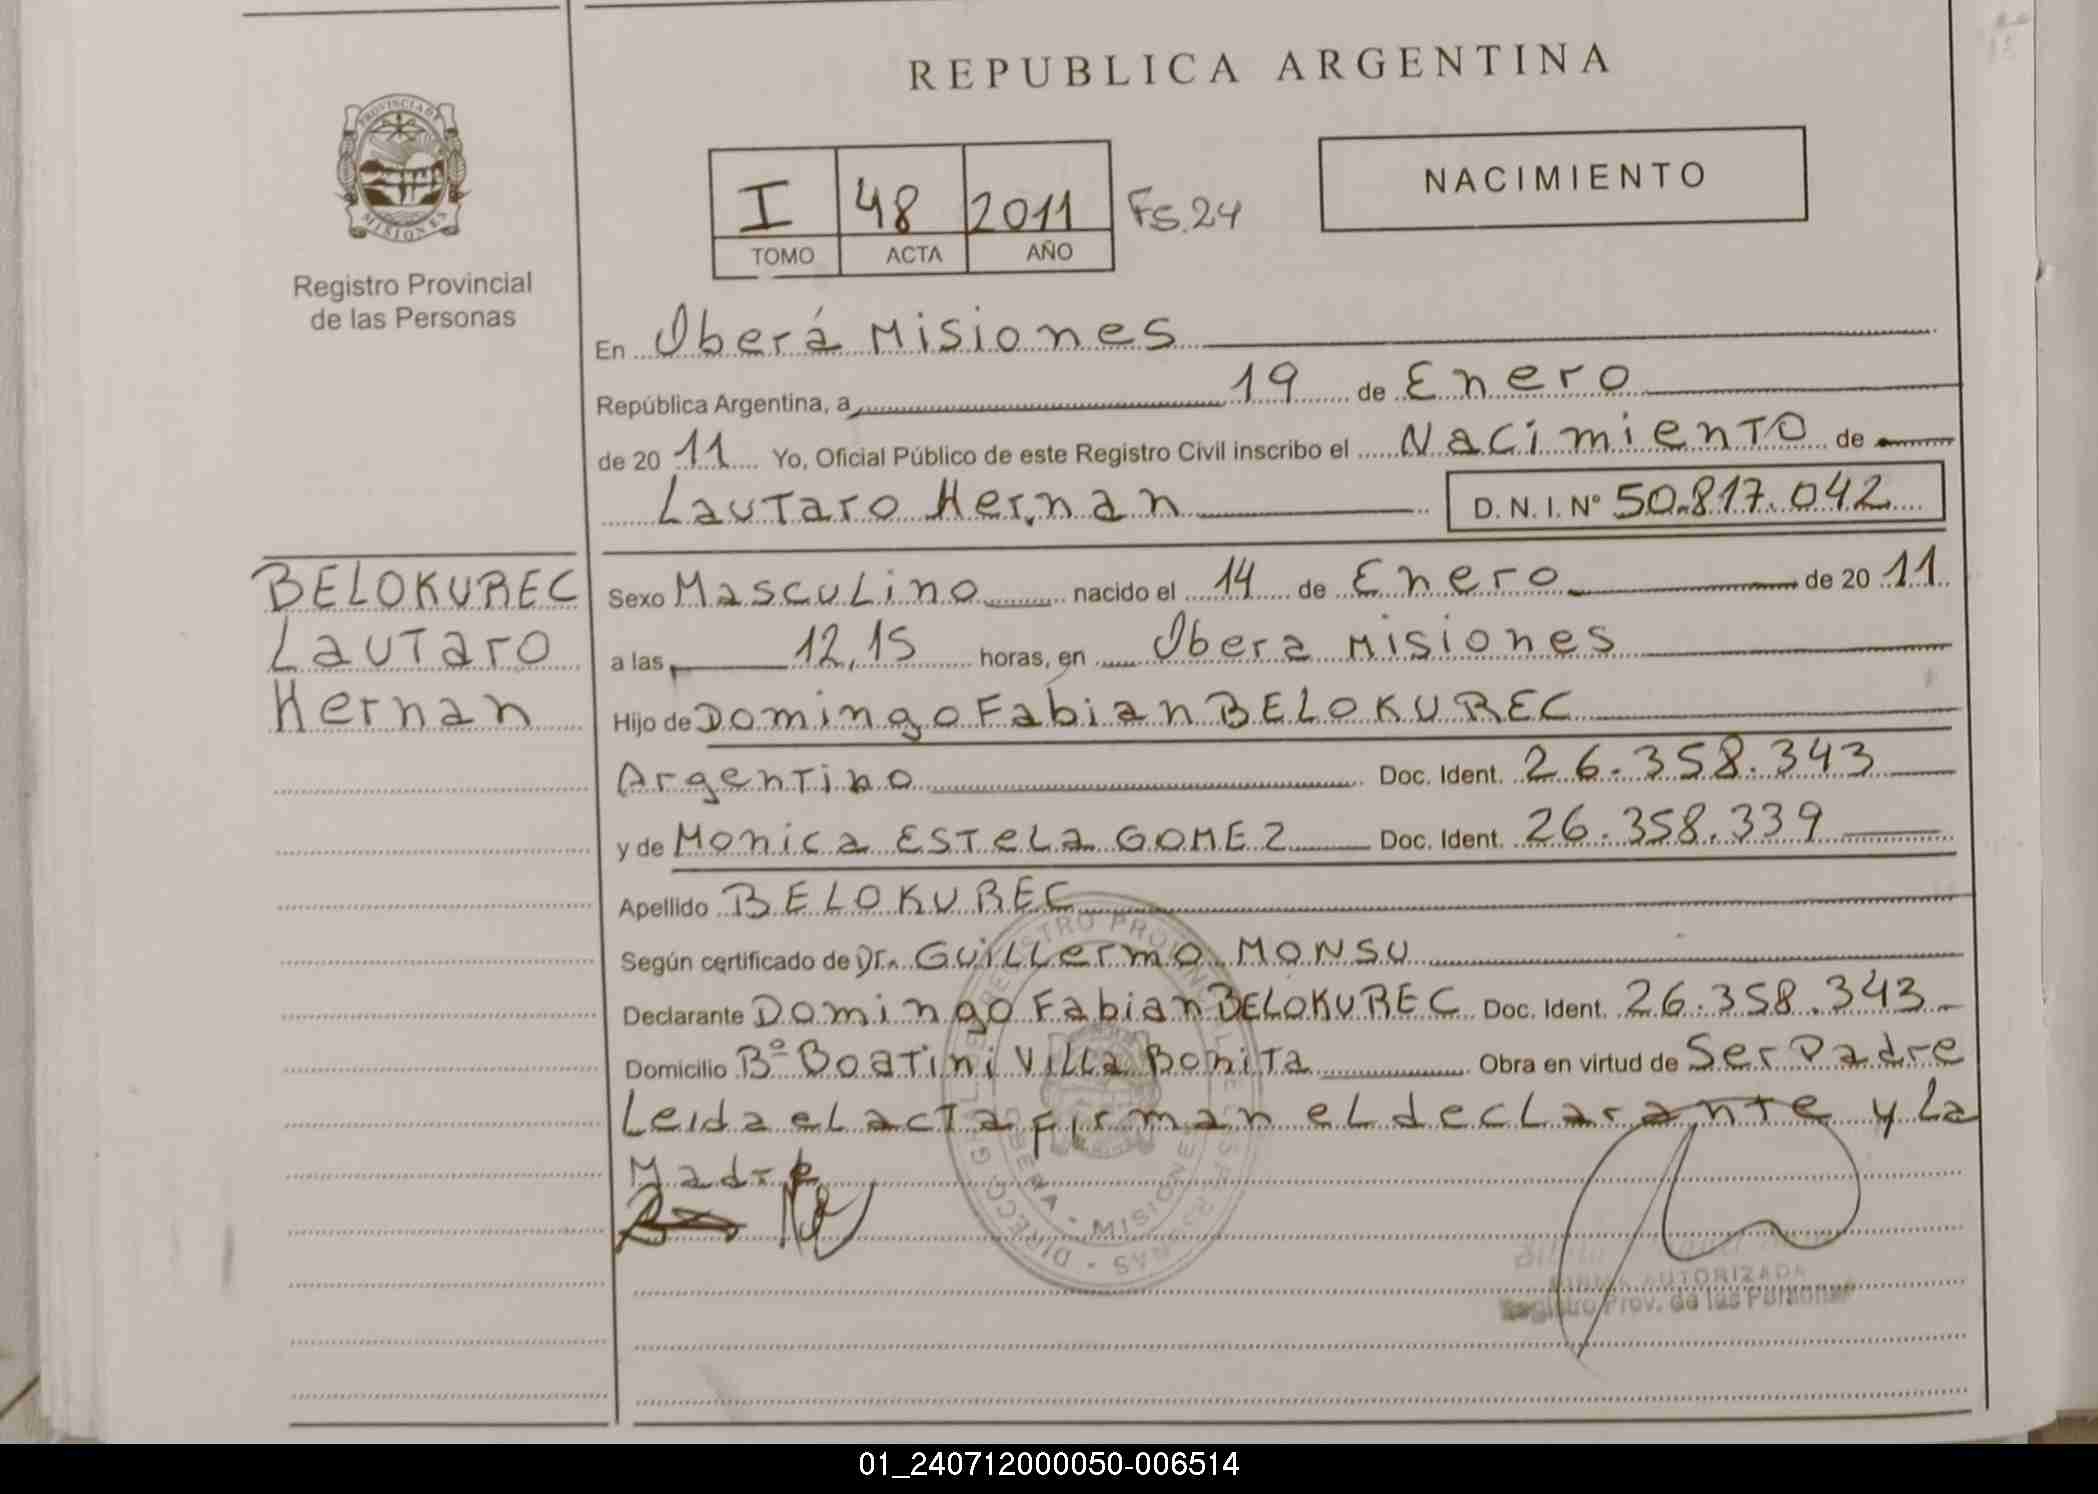 REPUBLICA ARGENTINA
PROVINCIA DE
MISIONES
Registro Provincial
de las Personas
I 48 2011 Fs.24
TOMO ACTA AÑO
NACIMIENTO
En Oberá Misiones
República Argentina, a 19 de Enero
de 20 11 Yo, Oficial Público de este Registro Civil inscribo el Nacimiento de
Lautaro Hernan D. N. I. Nº 50.817.042
BELOKUREC
Lautaro
Hernan
Sexo Masculino nacido el 14 de Enero de 20 11
a las 12,15 horas, en Obera Misiones
Hijo de Domingo Fabian BELOKUREC
Argentino Doc. Ident. 26.358.343
y de Monica Estela GOMEZ Doc. Ident. 26.358.339
Apellido BELOKUREC
Según certificado de Dr. Guillermo MONSU
Declarante Domingo Fabian BELOKUREC Doc. Ident. 26.358.343
Domicilio Bº Boatini Villa Bonita Obra en virtud de Ser Padre
Leida el acta firman el declarante y la
Madre
OBERA - MISIONES
FIRMA AUTORIZADA
Registro Prov. de las Personas
01_240712000050-006514